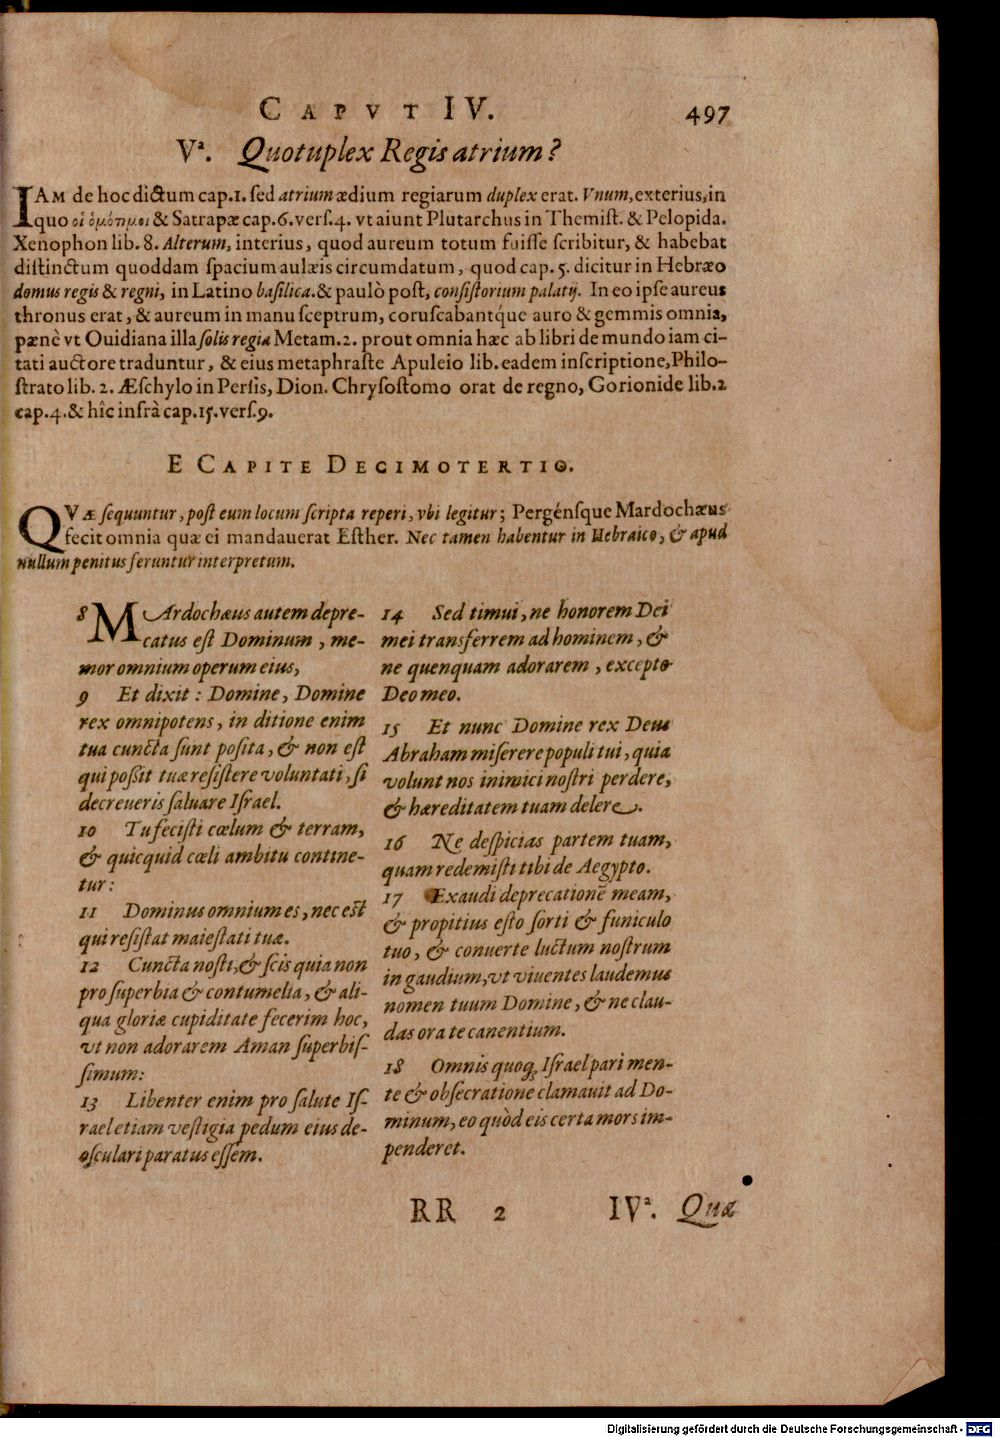 CAPVT IV. 497
Vª. Quotuplex Regis atrium?
IAM de hoc dictum cap.1. sed atrium ædium regiarum duplex erat. Vnum, exterius, in
quo οἱ ὁμότιμοι & Satrapæ cap.6. vers.4. vt aiunt Plutarchus in Themist. & Pelopida.
Xenophon lib. 8. Alterum, interius, quod aureum totum fuisse scribitur, & habebat
distinctum quoddam spacium aulæis circumdatum, quod cap. 5. dicitur in Hebræo
domus regis & regni, in Latino basilica. & paulò post, consistorium palatij. In eo ipse aureus
thronus erat, & aureum in manu sceptrum, coruscabantq́ue auro & gemmis omnia,
pænè vt Ouidiana illa solis regia Metam.2. prout omnia hæc ab libri de mundo iam ci-
tati auctore traduntur, & eius metaphraste Apuleio lib. eadem inscriptione, Philo-
strato lib. 2. Æschylo in Persis, Dion. Chrysostomo orat de regno, Gorionide lib.2
cap.4. & hîc infrà cap.15. vers.9.
E CAPITE DECIMOTERTIO.
QVÆ sequuntur, post eum locum scripta reperi, vbi legitur; Pergénsque Mardochæus
fecit omnia quæ ei mandauerat Esther. Nec tamen habentur in Hebraico, & apud
nullum penitus feruntur interpretum.
8 MArdochæus autem depre-
catus est Dominum, me-
mor omnium operum eius,
9 Et dixit: Domine, Domine
rex omnipotens, in ditione enim
tua cuncta sunt posita, & non est
qui possit tuæ resistere voluntati, si
decreueris saluare Israel.
10 Tu fecisti cœlum & terram,
& quicquid cœli ambitu contine-
tur:
11 Dominus omnium es, nec est
qui resistat maiestati tuæ.
12 Cuncta nosti, & scis quia non
pro superbia & contumelia, & ali-
qua gloriæ cupiditate fecerim hoc,
vt non adorarem Aman superbis-
simum:
13 Libenter enim pro salute Is-
rael etiam vestigia pedum eius de-
osculari paratus essem.
14 Sed timui, ne honorem Dei
mei transferrem ad hominem, &
ne quenquam adorarem, excepto
Deo meo.
15 Et nunc Domine rex Deus
Abraham miserere populi tui, quia
volunt nos inimici nostri perdere,
& hæreditatem tuam delere.
16 Ne despicias partem tuam,
quam redemisti tibi de Aegypto.
17 Exaudi deprecationẽ meam,
& propitius esto sorti & funiculo
tuo, & conuerte luctum nostrum
in gaudium, vt viuentes laudemus
nomen tuum Domine, & ne clau-
das ora te canentium.
18 Omnis quoq; Israel pari men-
te & obsecratione clamauit ad Do-
minum, eo quòd eis certa mors im-
penderet.
RR 2 IVª. Quæ
Digitalisierung gefördert durch die Deutsche Forschungsgemeinschaft - DFG